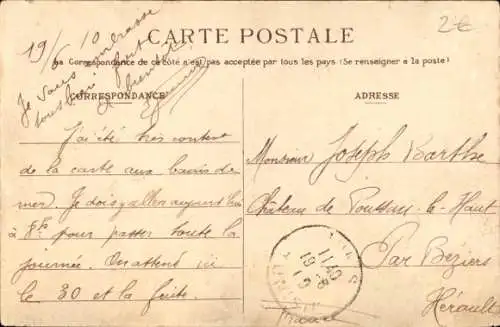 2€
19/6 10
Je vous embrasse
tous trois fort
à bientôt
CARTE POSTALE
La Correspondance de ce côté n'est pas acceptée par tous les pays (Se renseigner à la poste)
CORRESPONDANCE
J'ai été très content
de la carte aux bains de
mer. Je dois y aller aujourd'hui
à 8h pour passer toute la
journée. On attend ici
le 30 et la fuite.
ADRESSE
Monsieur Joseph Barthe
Château de Poussan-le-Haut
Par Béziers
Hérault
France
11 40
19 -6
10